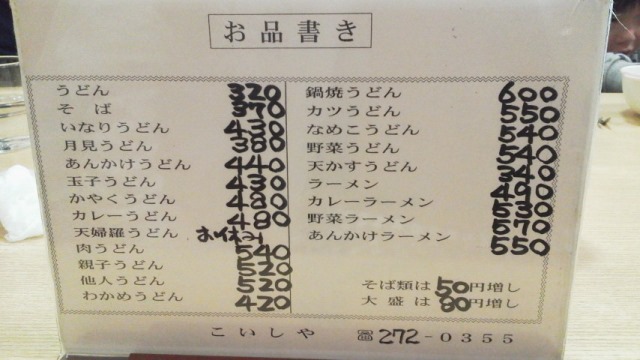 お品書き
うどん 320
そば 370
いなりうどん 430
月見うどん 380
あんかけうどん 440
玉子うどん 430
かやくうどん 480
カレーうどん 480
天婦羅うどん お休み
肉うどん 540
親子うどん 520
他人うどん 520
わかめうどん 420
鍋焼うどん 600
カツうどん 550
なめこうどん 540
野菜うどん 540
天かすうどん 340
ラーメン 490
カレーラーメン 530
野菜ラーメン 570
あんかけラーメン 550
そば類は50円増し
大盛は80円増し
こいしや ☎272-0355